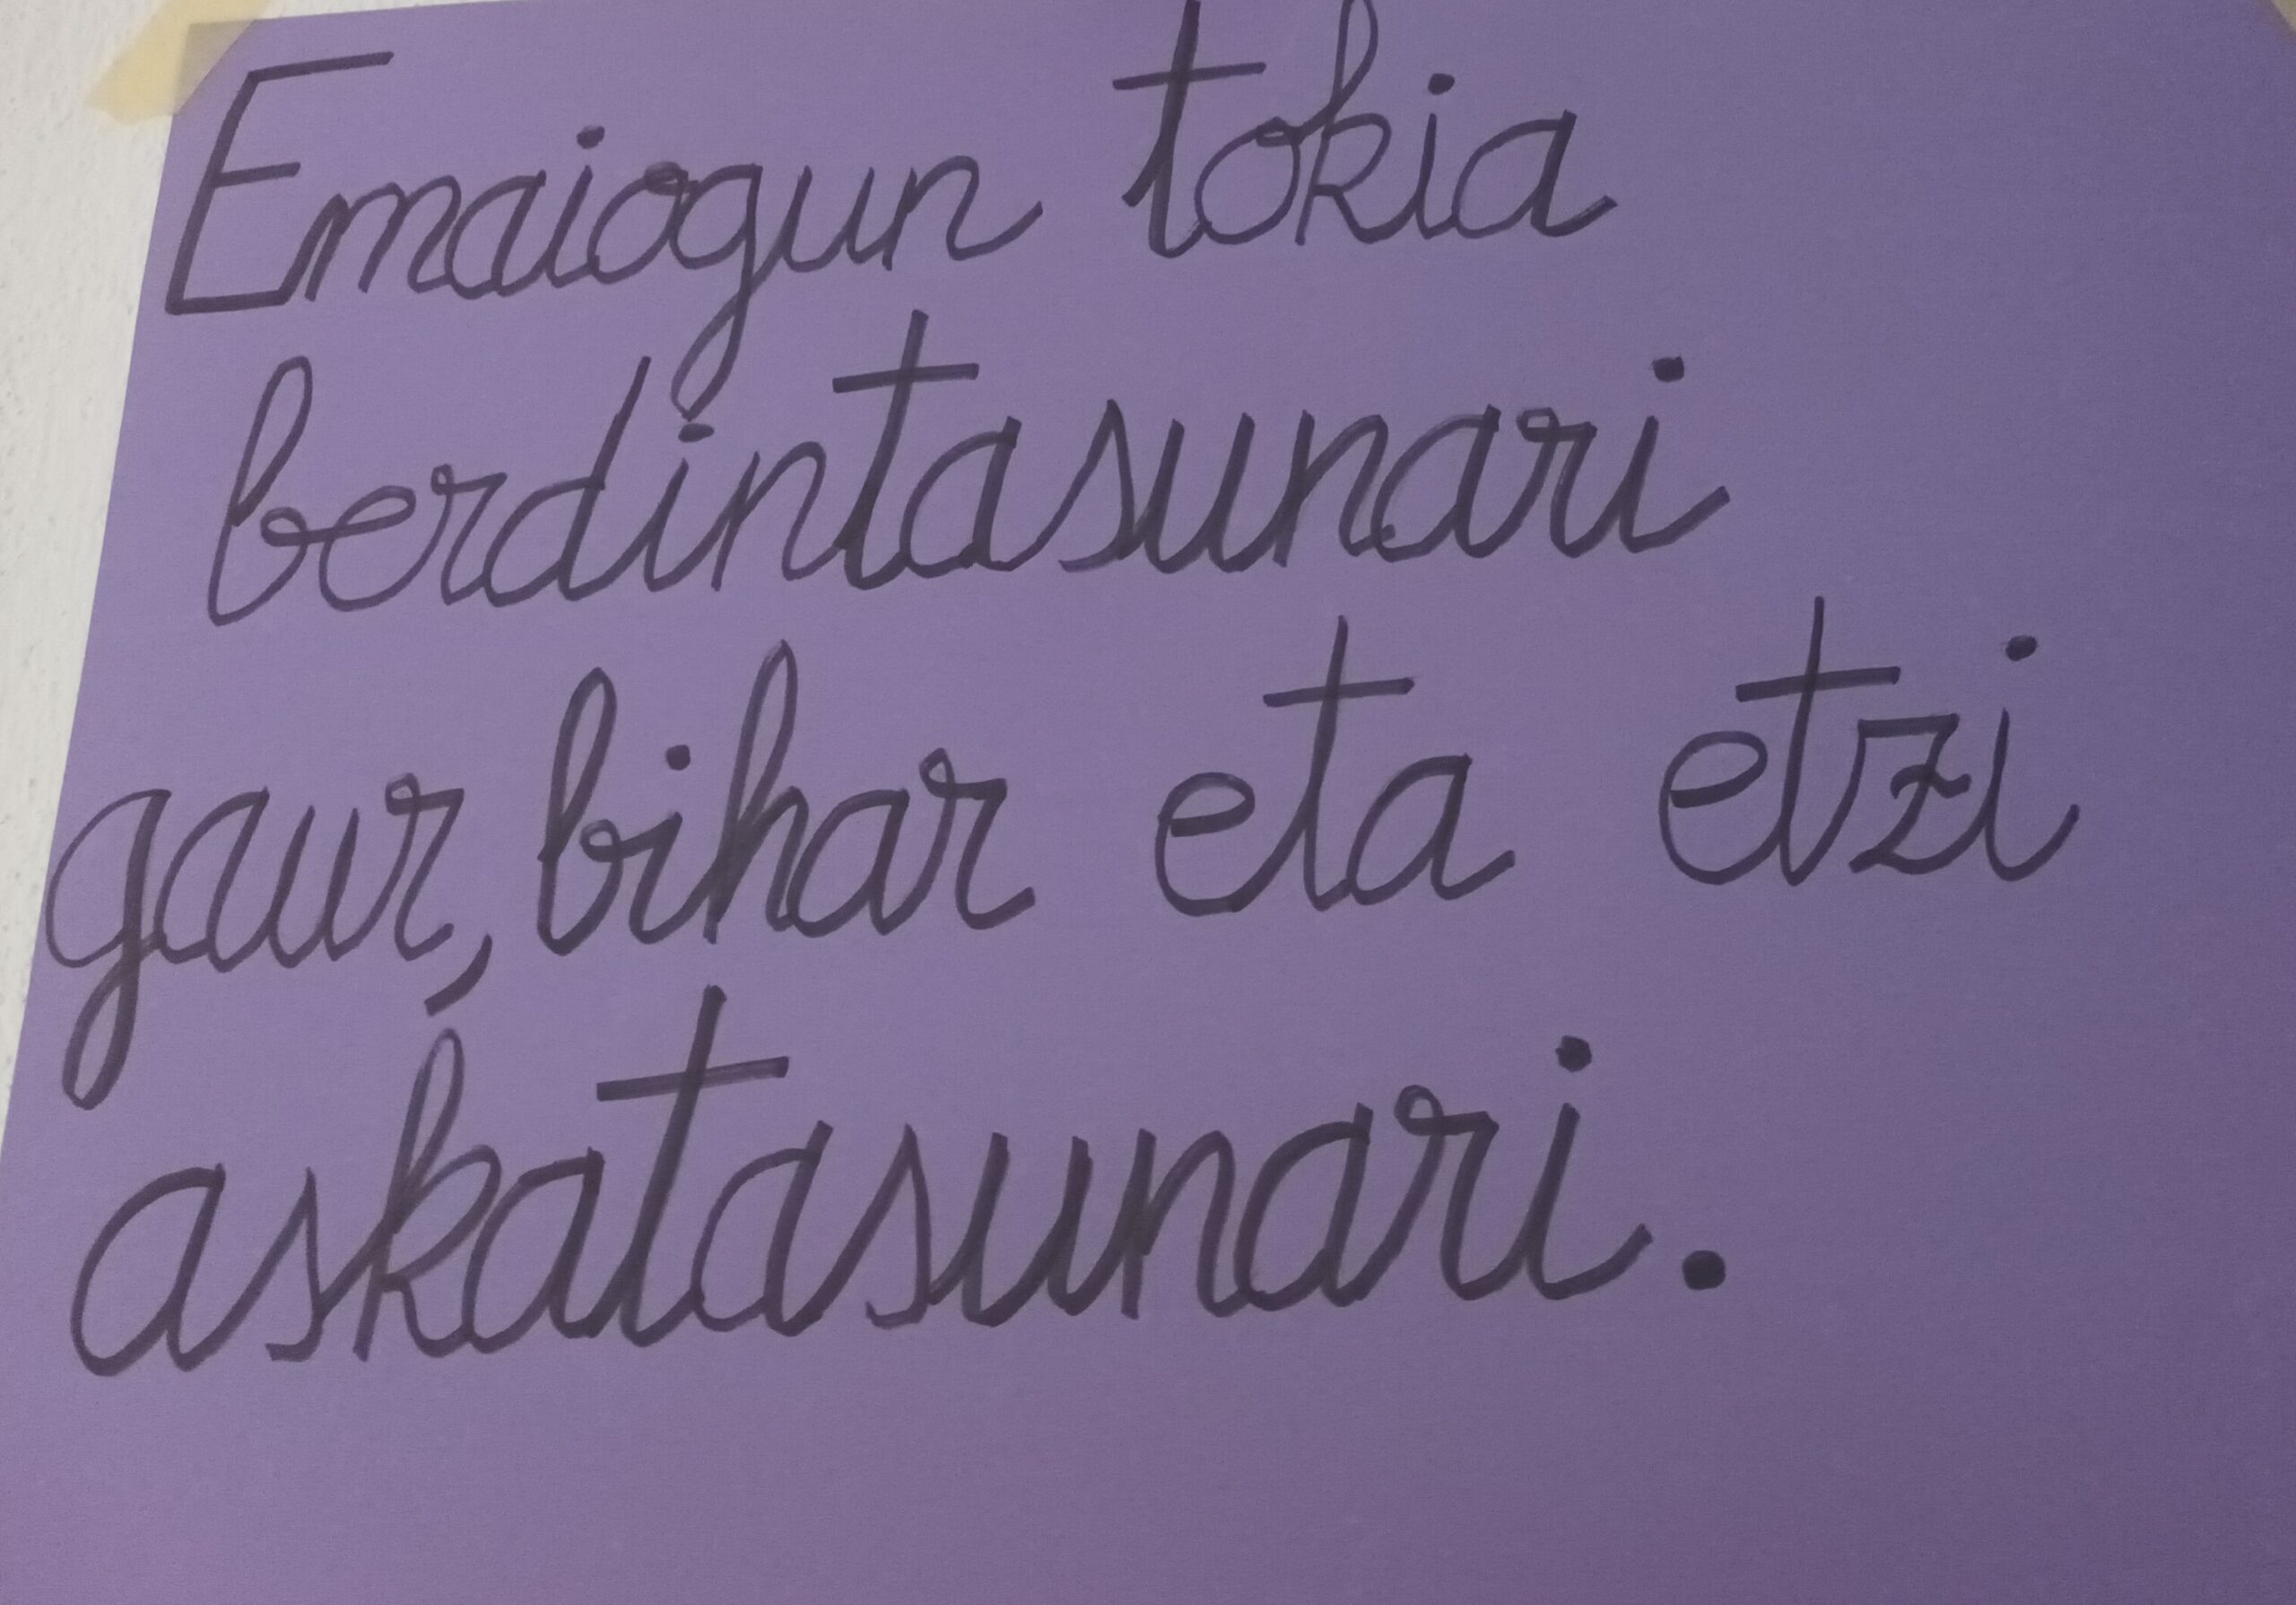 Emaiogun tokia
berdintasunari
gaur, bihar eta etzi
askatasunari.